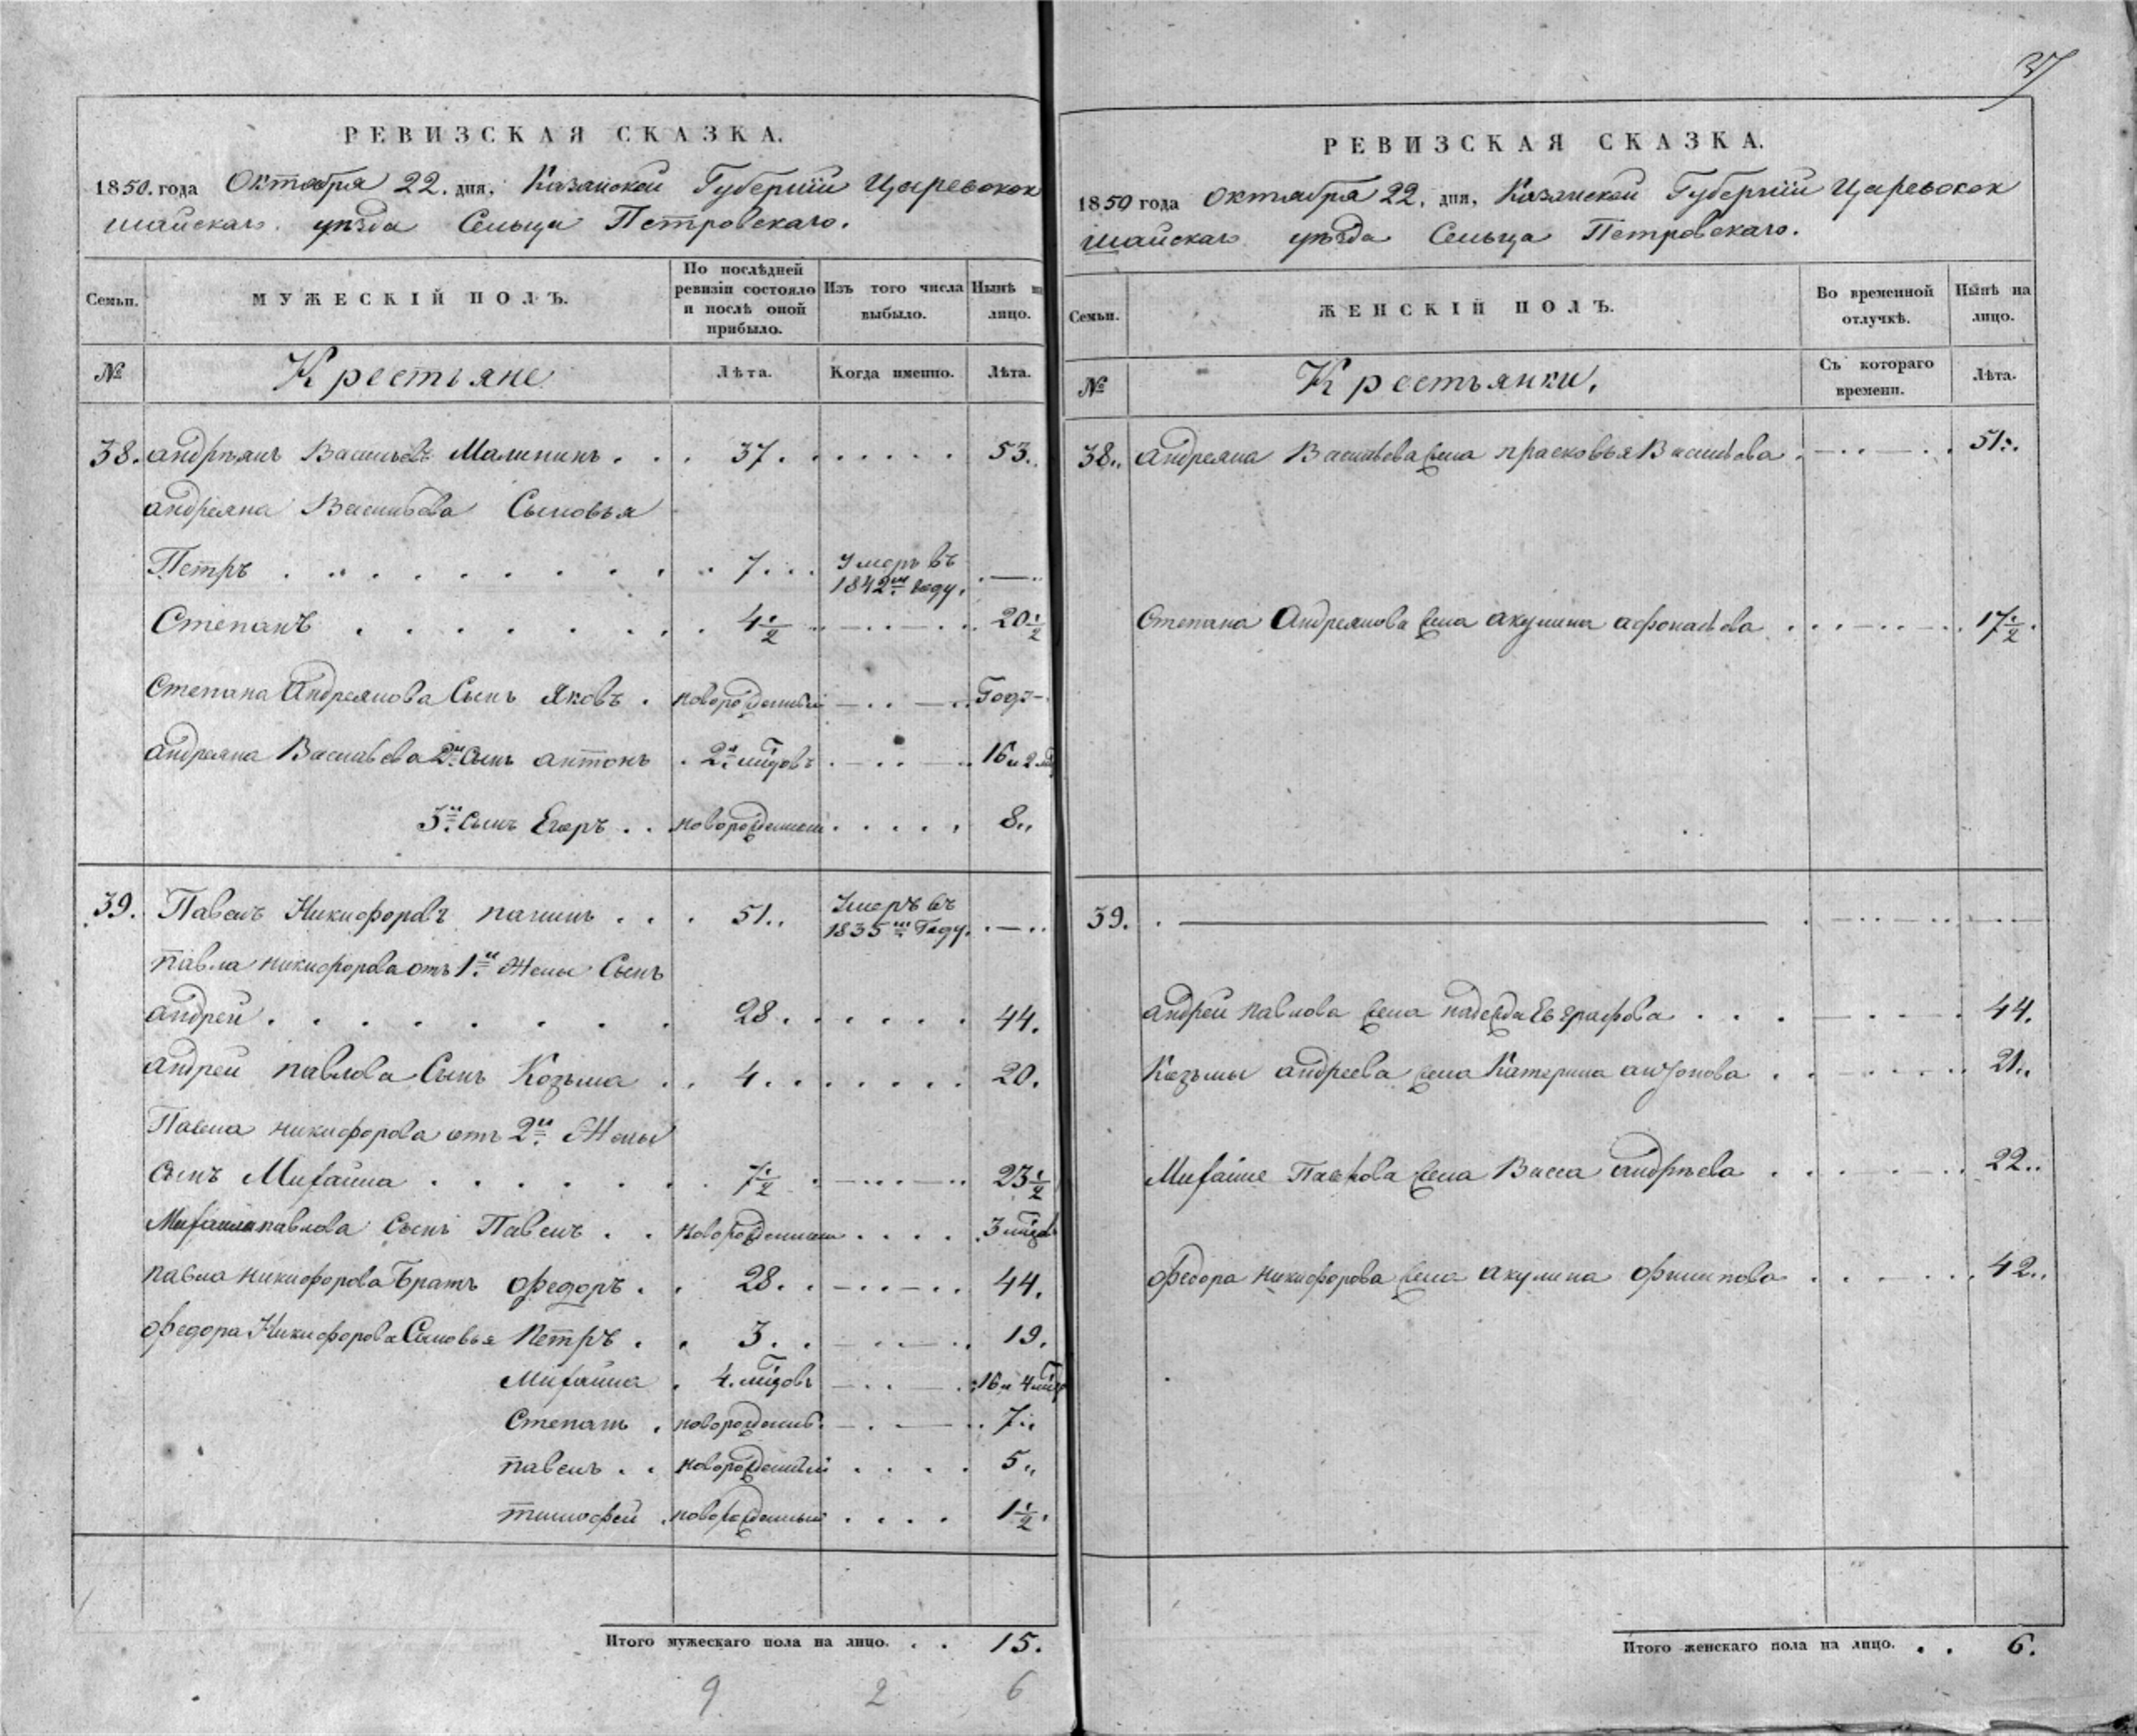 37
РЕВИЗСКАЯ СКАЗКА.
1850. года Октября 22. дня, Казанской Губернiи Царевокок
шайскаго уѣзда Сельца Петровскаго.
Семьи.
МУЖЕСКIЙ ПОЛЪ.
По послѣдней ревизiи состояло и послѣ оной прибыло.
Изъ того числа выбыло.
Нынѣ на лицо.
№
Крестьяне
Лѣта.
Когда именно.
Лѣта.
38. андрѣянъ Васильевъ Малининъ . . . 37. . . . . . . 53..
андреяна Васильева Сыновья
Петръ . . . . . . . . 7. . . Умеръ въ 1842м. году. . — ..
Степанъ . . . . . . . 4 1/2 .. — . . — .. 20 1/2
Степана Андреянова Сынъ Яковъ . новорожденный — . . — .. Годъ
андреяна Васильева 2й. сынъ антонъ . 2х. мѣцовъ . — . . — .. 16 и 2 мѣц
3й. сынъ Егоръ . . новорожденный . . . . . 8..
39. Павелъ Никифоровъ . . . 51.. Умеръ въ 1835м. Году. . — ..
павла никифорова отъ 1й. Жены Сынъ
андрей . . . . . . . . 28 . . . . . . 44.
андрей павлова Сынъ Козьма . . 4. . . . . . . 20.
Павла никифорова отъ 2й. Жены
сынъ Михайла . . . . . . 7 1/2 . — . . . — .. 23 1/2
Михайла павлова Сынъ Павелъ . . новорожденный . . . . 3 мѣцов
павла никифорова Братъ Федоръ . . 28. . — . . — . . 44.
Федора Никифорова Сыновья Петръ . . 3. . — . . — . . 19.
Михайла . 4. мѣцовъ — . . — . 16 и 4 мѣц
Степанъ . новорожденный. — . — . . 7..
павелъ . . новорожденный . . . . 5..
тимофей . новорожденный . . . . 1 1/2.
Итого мужескаго пола на лицо. . . 15.
9 2 6
РЕВИЗСКАЯ СКАЗКА.
1850 года октября 22. дня, Казанской Губернiи Царевокок
шайскаго уѣзда Сельца Петровскаго.
Семьи.
ЖЕНСКIЙ ПОЛЪ.
Во временной отлучкѣ.
Нынѣ на лицо.
№
Крестьянки,
Съ котораго времени.
Лѣта.
38.. андреяна Васильева жена прасковья Васильева . — . . — . . 51..
Степана Андреянова жена акулина афонасьева . . . — . . — . . 17 1/2.
39. . — . — . . — . . — . . —
андрей павлова жена надежда Евграфова . . . — . . — . 44.
Козьмы андреева жена Катерина антонова . . . . . . . 21..
Михайле Павлова жена Васса андрѣева . . . . . . 22..
Федора никифорова жена акулина Филипова . . . . . . 42..
Итого женскаго пола на лицо. . . 6.